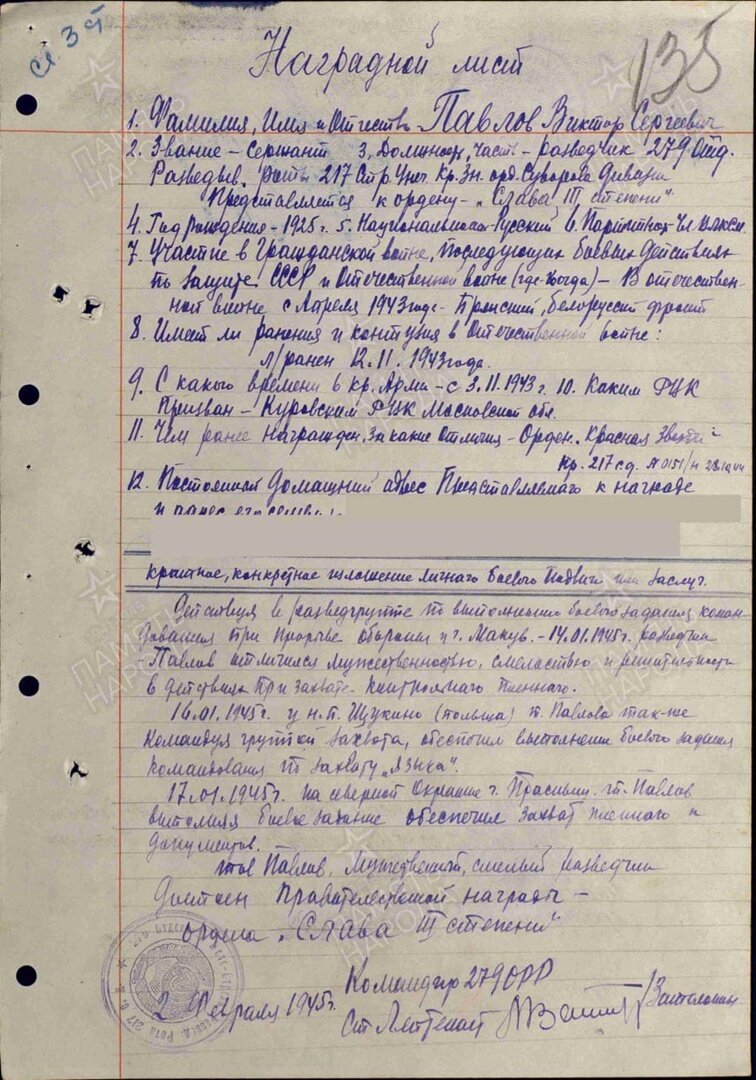 Сл 3 ст
135
Наградной лист
1. Фамилия, Имя и Отчество – Павлов Виктор Сергеевич
2. Звание – Сержант 3. Должность, часть – разведчик 279 Отд.
Разведыв. роты 217 Стр. Унеч. Кр. Зн. орд. Суворова Дивизии
Представляется к ордену – „Слава III степени"
4. Год рождения – 1925 г. 5. Национальность – Русский 6. Партийность Чл. ВЛКСМ
7. Участие в Гражданской войне, последующих боевых действиях
по защите СССР и Отечественной войне (где когда) – В отечествен-
ной войне с Апреля 1943 года – Брянский, белорусский фронт
8. Имеет ли ранения и контузия в Отечественной войне:
л/ранен 12.11.1943 года.
9. С какого времени в Кр. Арми – с 3.11.1943 г. 10. Каким РВК
Призван – Куровским РВК Московской обл.
11. Чем ранее награжден, за какие отличия – Орден „Красная Звезда"
Пр. 217 с.д. № 0151/н
12. Постоянный домашний адрес Представляемого к награде
и адрес его семьи:
краткое, конкретное изложение личного боевого Подвига или заслуг.
Действуя в разведгруппе по выполнению боевого задания коман-
дования при прорыве обороны пр-ка 14.01.1945 г. разведчик
Павлов отличился мужественностью, смелостью и решительностью
в действиях При захвате контрольного пленного.
16.01.1945 г. у н.п. Щукино (польша) т. Павлов так-же
командуя группой захвата, обеспечил выполнения боевого задания
командования по захвату „языка".
17.01.1945 г. на северной Окраине г. Прасныш т. Павлов
выполняя боевое задание обеспечил захват пленного и
документов.
тов Павлов, мужественный, смелый разведчик
Достоен правительственной награды –
ордена „Слава III степени"
Командир 279 ОРР
2 Февраля 1945 г.
Ст Лейтенант
ПАМЯТЬ НАРОДА